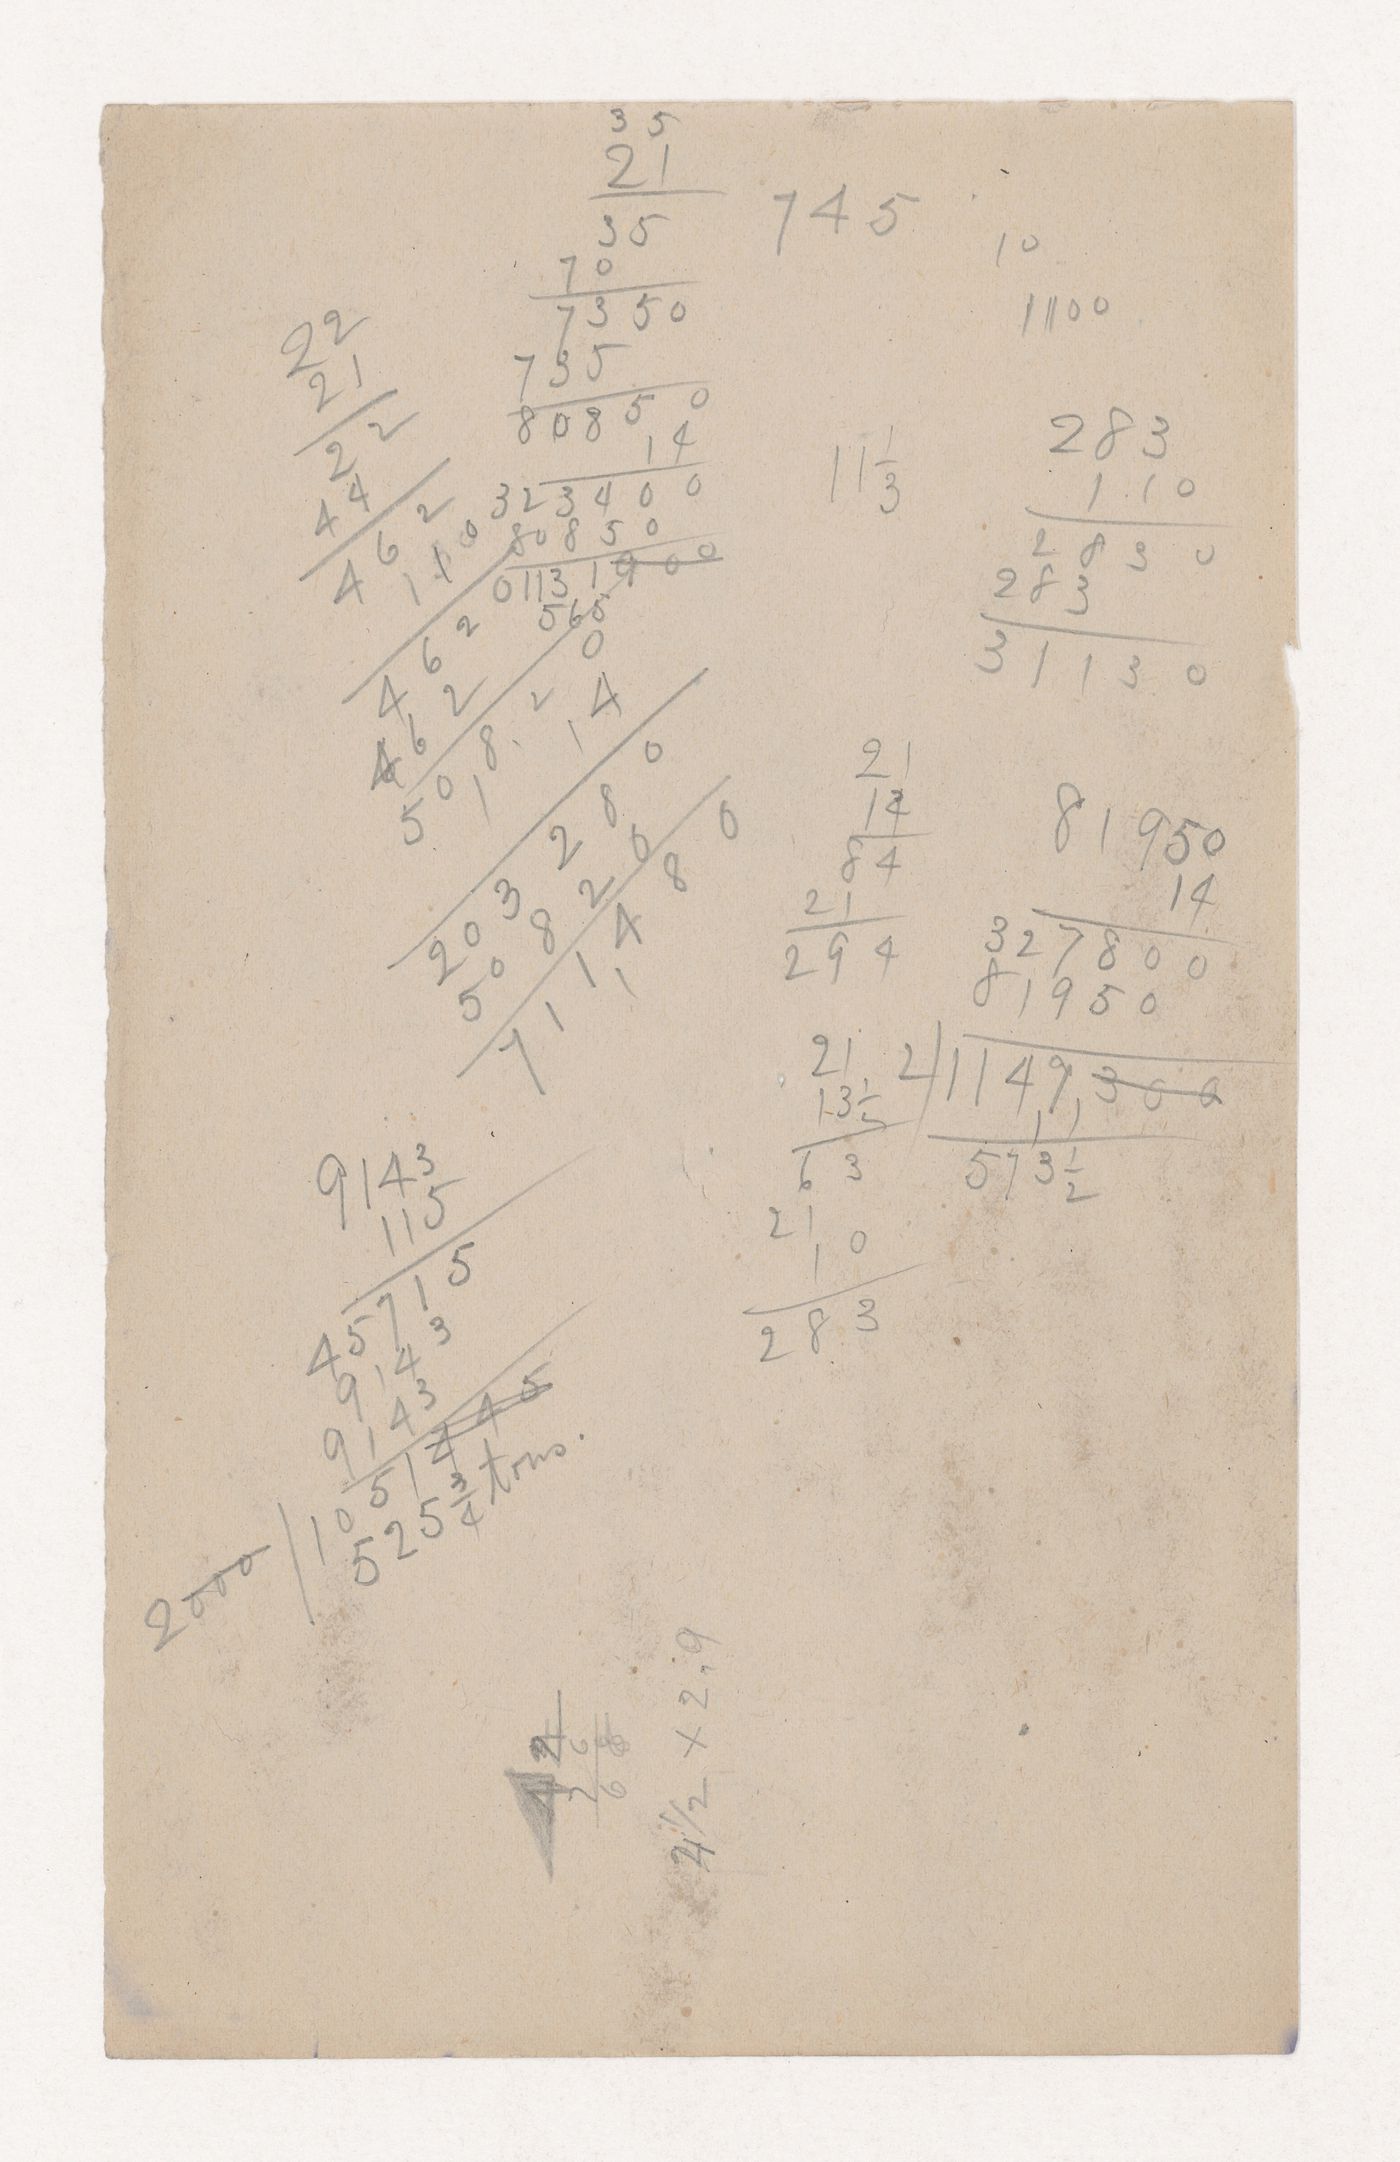 35
21
35
70
7350
735
80850
14
323400
80850
01131900
565
745
10
1100
22
21
22
44
462
110
462
462
50820
14
203280
50820
711480
11 1/3
283
110
2830
283
31130
21
14
84
21
294
81950
14
327800
81950
2/1149300
573 1/2
21
13 1/2
63
21
10
283
9143
115
45715
9143
9143
2000/1051445
525 3/4 tons.
4 1/2 x 2.9